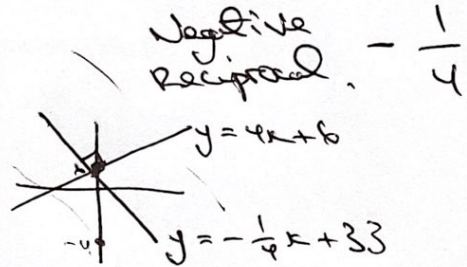 Negative
Reciprocal. - 1/4
y = 4x + 6
y = - 1/4 x + 33